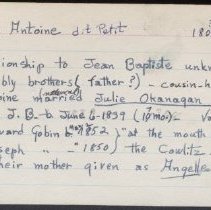 Antoine dit Petit 180
ionship to Jean Baptiste unkn
bly brothers (father?) - cousin-h
ine married Julie Okanagan
J. B. b. June 6-1839 (7 mo).
ward Gobin b. 1852 } at the mouth
seph " 1850 } the Cowlitz
eir mother given as Angelle